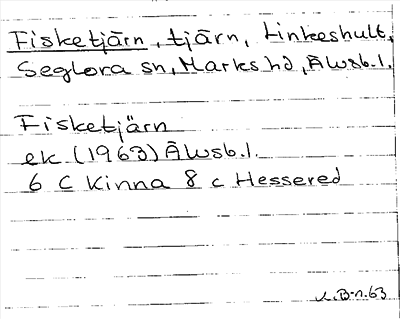 Fisketjärn, tjärn, Linkeshult,
Seglora sn, Marks hd, Älvsb.l.
Fisketjärn
ek. (1963) Älvsb.l.
6 C Kinna 8 c Hessered
L.B-n.63